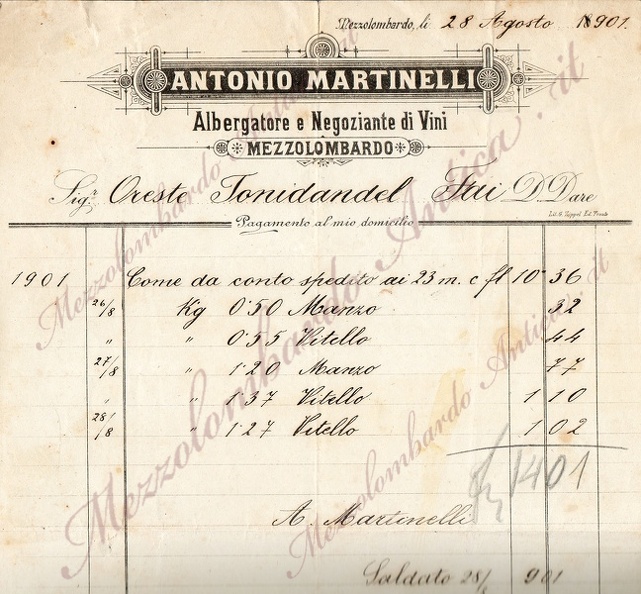 Mezzolombardo, li 28 Agosto 1901.
ANTONIO MARTINELLI
Albergatore e Negoziante di Vini
MEZZOLOMBARDO
Sigr Oreste Tonidandel Fai D Dare
Pagamento al mio domicilio
Lit. G. Zippel Ed. Trento
1901 Come da conto spedito ai 23 m. c fl 10 36
26/8 Kg 0·50 Manzo 32
" " 0·55 Vitello 44
27/8 " 1·20 Manzo 77
" " 1·37 Vitello 1 10
28/8 " 1·27 Vitello 1 02
fl 1401
A. Martinelli
Saldato 28/8 901
Mezzolombardo Antica.it
Mezzolombardo Antica.it
Mezzolombardo Antica.it